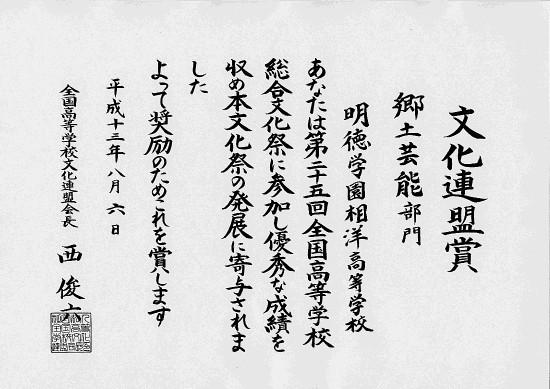 文化連盟賞
郷土芸能部門
明徳学園相洋高等学校
あなたは第二十五回全国高等学校
総合文化祭に参加し優秀な成績を
収め本文化祭の発展に寄与されま
した
よって奨励のためこれを賞します
平成十三年八月六日
全国高等学校文化連盟会長 西俊